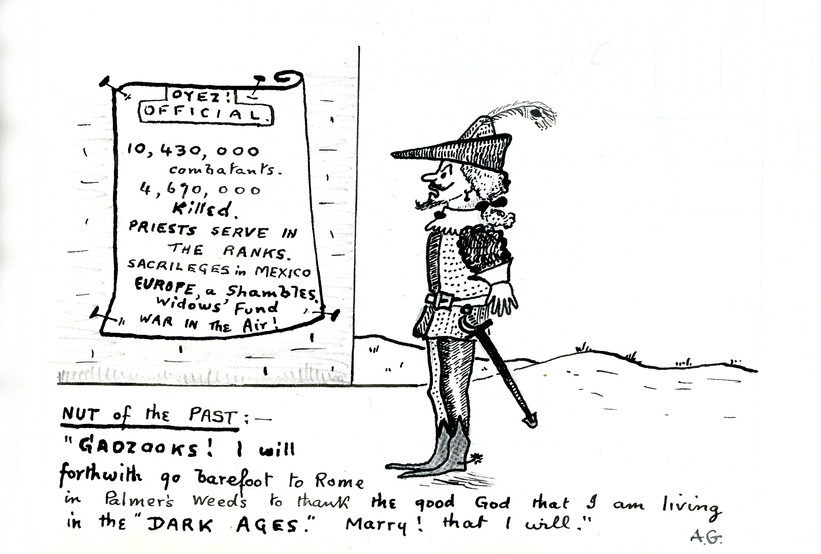 OYEZ!
OFFICIAL.
10,430,000
combatants.
4,690,000
Killed.
PRIESTS SERVE IN
THE RANKS.
SACRILEGES in MEXICO
EUROPE, a Shambles.
Widows' Fund
WAR IN The Air!
NUT of the PAST:—
"GADZOOKS! I will
forthwith go barefoot to Rome
in Palmer's Weeds to thank the good God that I am living
in the "DARK AGES." Marry! that I will."
A.G.